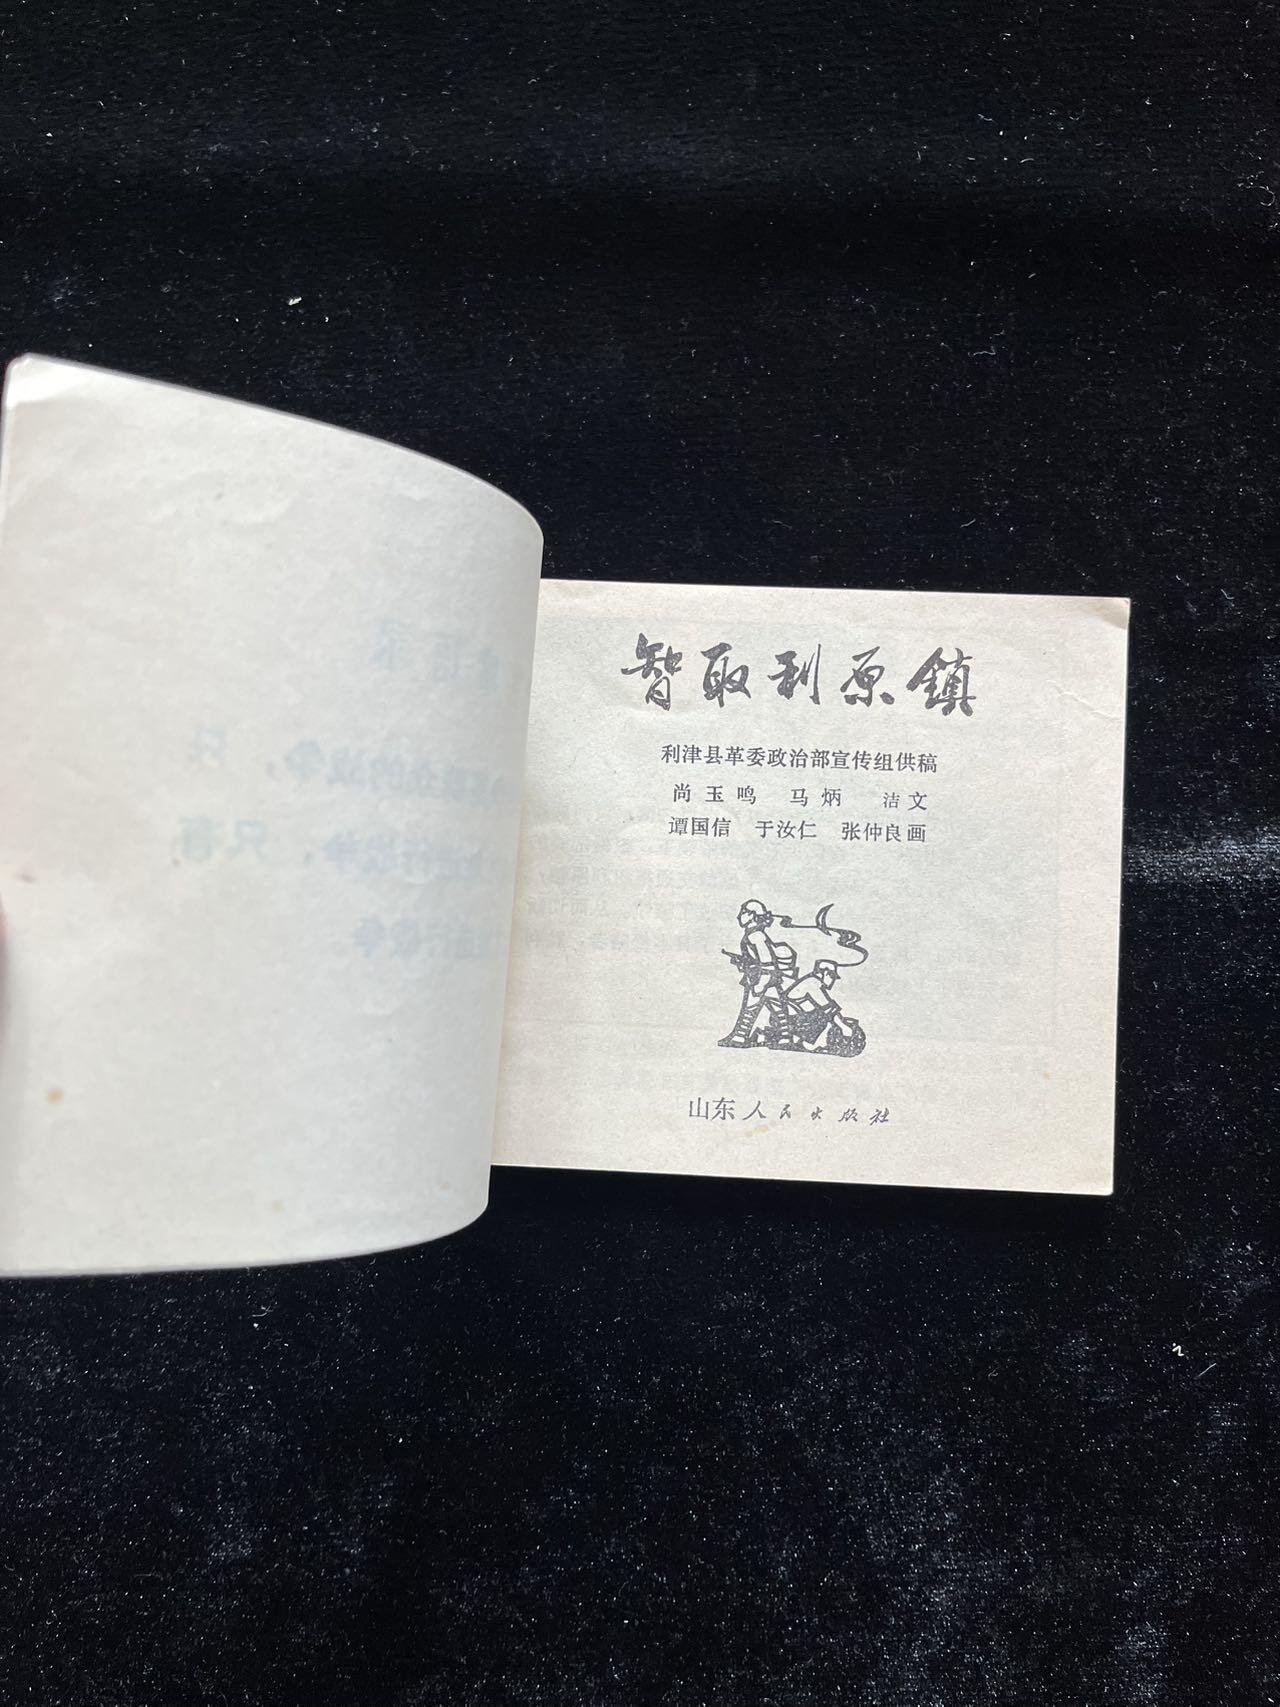 智取利原鎮
利津县革委政治部宣传组供稿
尚玉鸣 马炳 洁文
谭国信 于汝仁 张仲良画
山东人民出版社